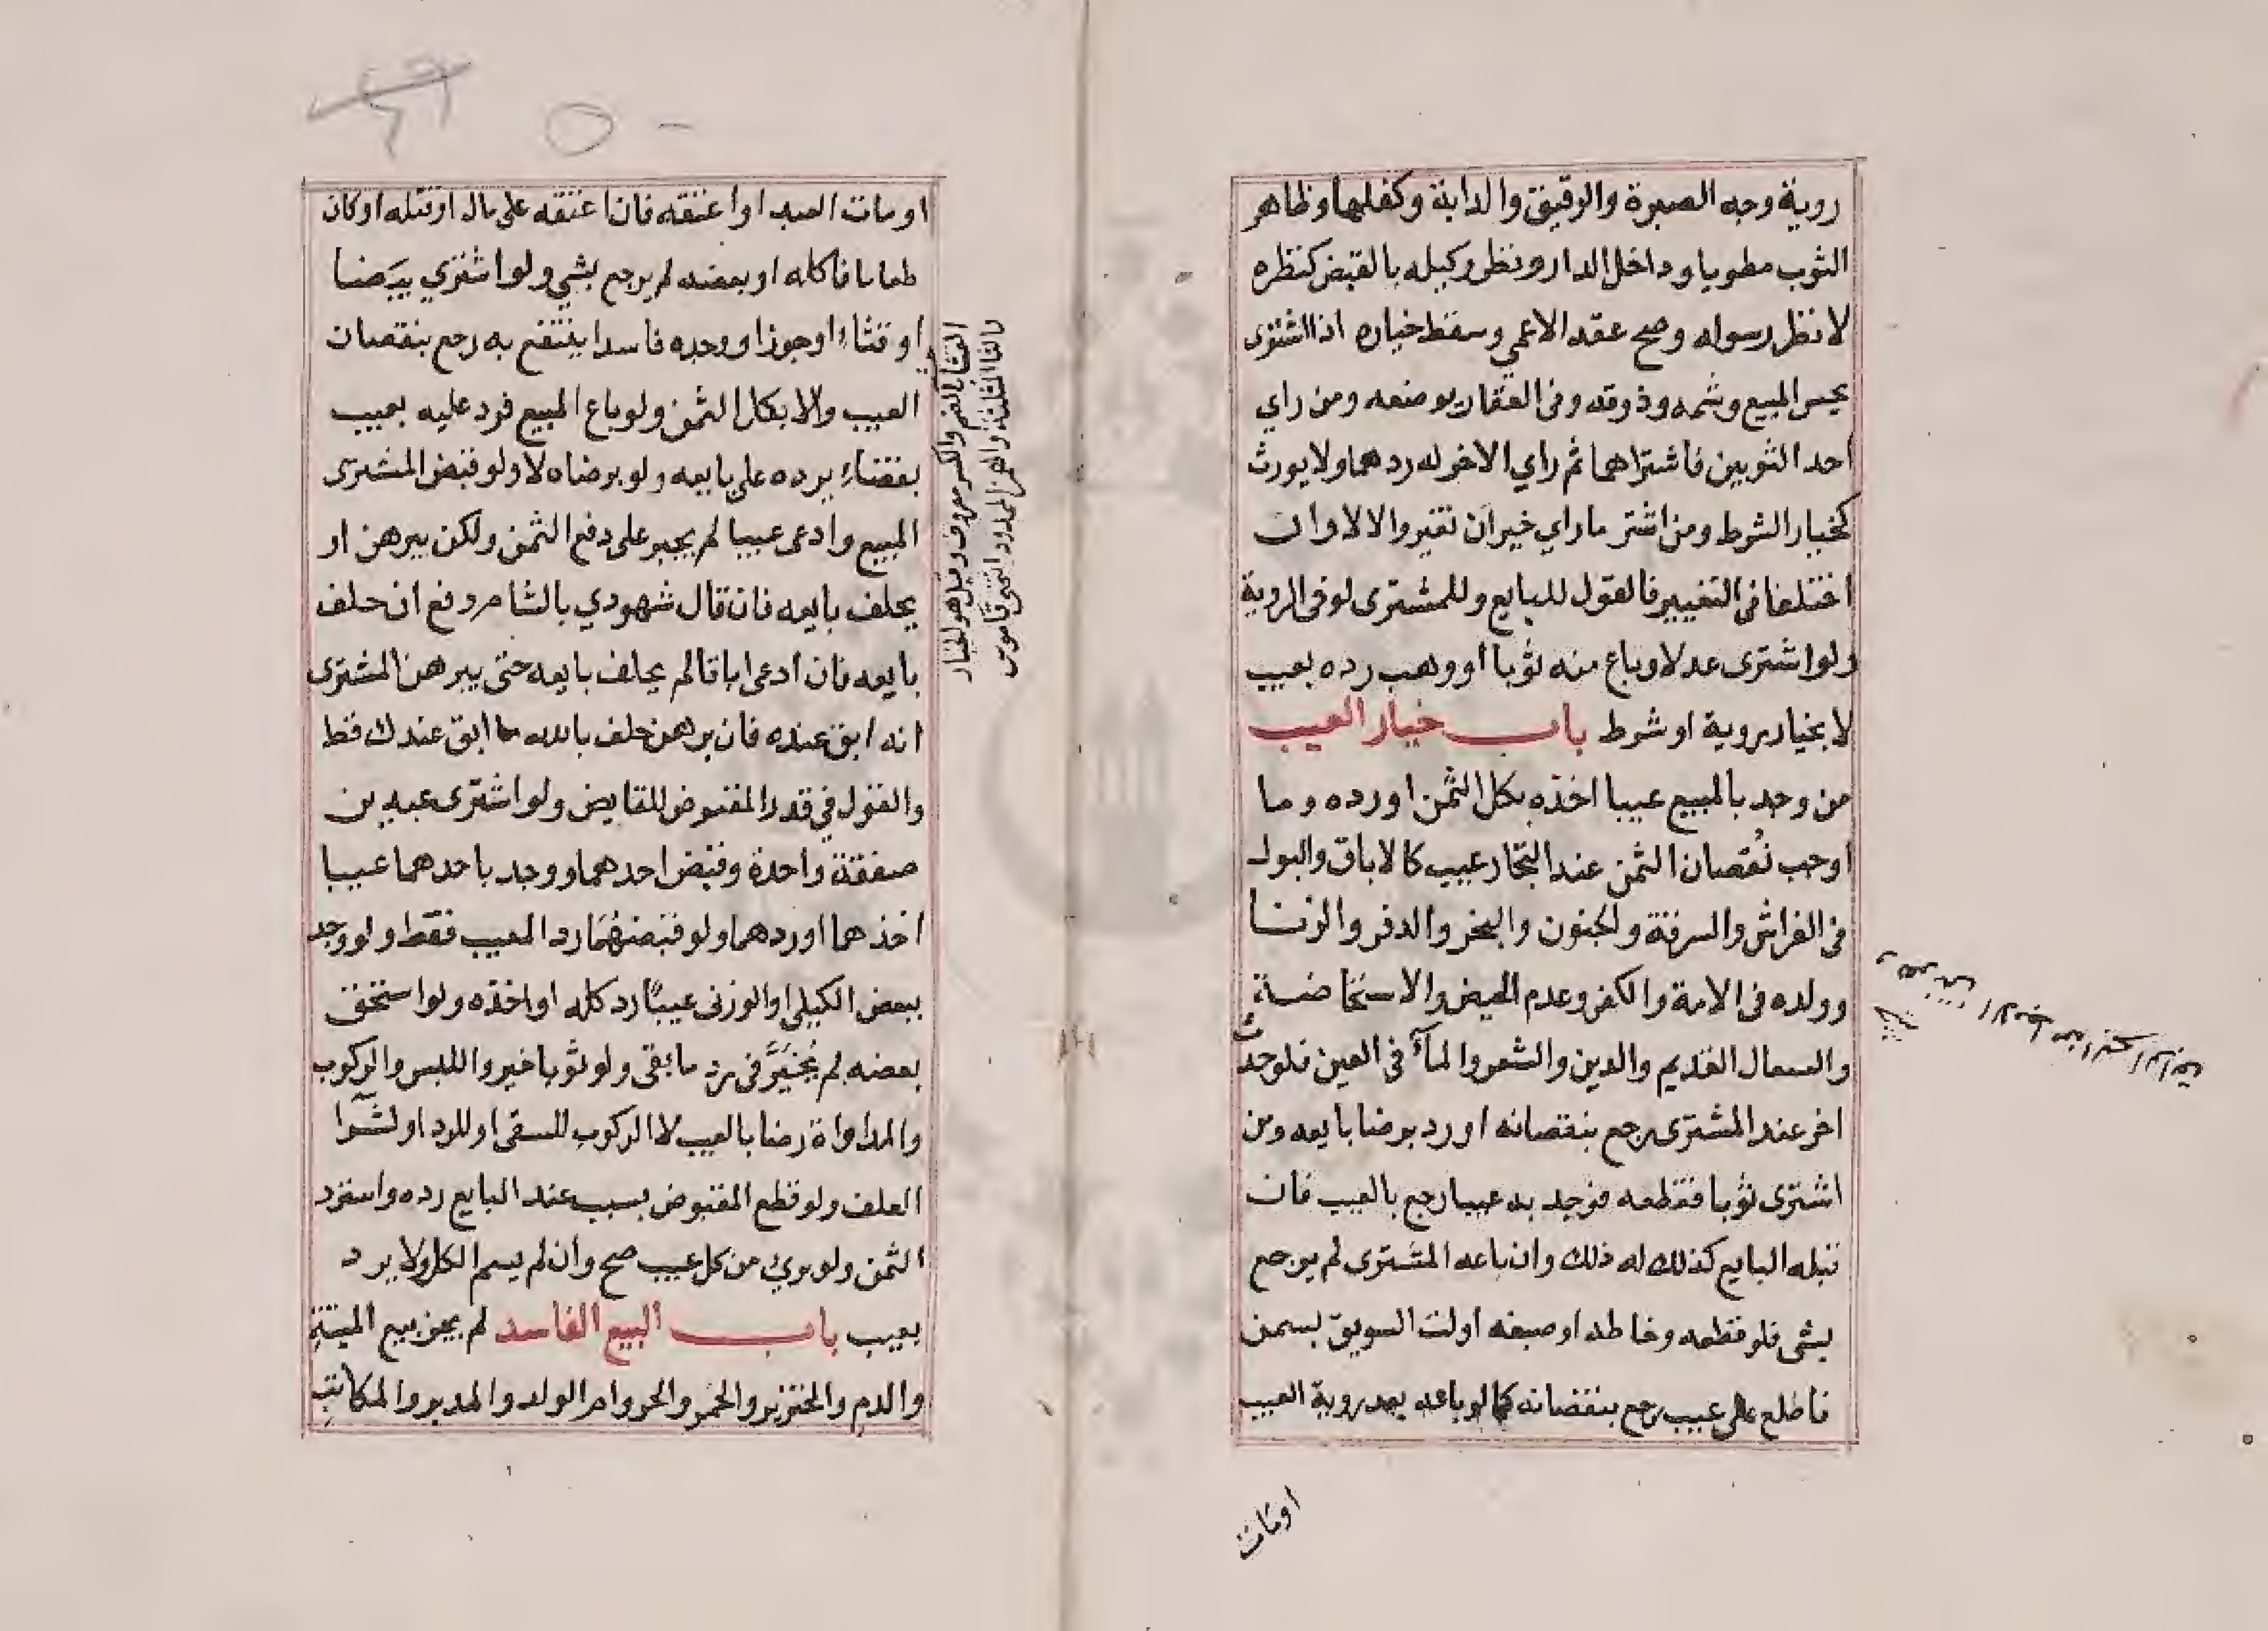 روية وجه الصبرة والرقيق والدابة وكفلهما وظاهر
الثوب مطويا وداخل الدار ونظر وكيله بالقبض كنظره
لا نظر رسوله وصح عقد الاعمي وسقط خياره اذا اشترى
بجس المبيع وشمه وذوقه وفى العقار بوصفه ومن راي
احد الثوبين فاشتراهما ثم راي الاخر له ردهما ولا يورث
كخيار الشرط ومن اشتر ما راي خير ان تغير والا لا وان
اختلفا فى التغيير فالقول للبايع وللمشترى لو فى الروية
ولو اشترى عدلا وباع منه ثوبا او وهب رده بعيب
لا بخيار روية او شرط باب خيار العيب
من وجد بالمبيع عيبا اخذه بكل الثمن او رده وما
اوجب نقصان الثمن عند التجار عيب كالاباق والبول
فى الفراش والسرقة والجنون والبخر والدفر والزنا
وولده فى الامة والكفر وعدم الحيض والاستحاضة
والسعال القديم والدين والشعر والمآء فى العين فلو حدث
اخر عند المشترى رجع بنقصانه او رد برضا بايعه ومن
اشترى ثوبا فقطعه فوجد به عيبا رجع بالعيب فان
قبله البايع كذلك له ذلك وان باعه المشترى لم يرجع
بشى فلو قطعه وخاطه او صبغه او لت السويق بسمن
فاطلع على عيب رجع بنقصانه كما لو باعه بعد روية العيب
اومات
او مات العبد او اعتقه فان اعتقه على مال او قتله او كان
طعاما فاكله او بعضه لم يرجع بشي ولو اشتري بيضا
او قثاء او جوزا ووجده فاسدا ينتفع به رجع بنقصان
العيب والا بكل الثمن ولو باع المبيع فرد عليه بعيب
بقضاء يرده على بايعه ولو برضاه لا ولو قبض المشترى
المبيع وادعى عيبا لم يجبر على دفع الثمن ولكن يبرهن او
يحلف بايعه فان قال شهودي بالشام دفع ان حلف
بايعه فان ادعى اباقا لم يحلف بايعه حتى يبرهن المشترى
انه ابق عنده فان برهن حلف بالله ما ابق عندك قط
والقول في قدر المقبوض للقابض ولو اشترى عبدين
صفقة واحدة وقبض احدهما ووجد باحدهما عيبا
اخذهما او ردهما ولو قبضهما رد المعيب فقط ولو وجد
ببعض الكيلى او الوزنى عيبا رد كله او اخذه ولو استحق
بعضه لم يخير فى رد ما بقى ولو ثوبا خير واللبس والركوب
والمداواة رضا بالعيب لا الركوب للسقى او للرد او لشرا
العلف ولو قطع المقبوض بسبب عند البايع رده واسترد
الثمن ولو برئ من كل عيب صح وان لم يسم الكل ولا يرد
بعيب باب البيع الفاسد لم يجز بيع الميتة
والدم والخنزير والخمر والحر وام الولد والمدبر والمكاتب
القثاء بالضم والكسر معروف وقيل هو الخيار